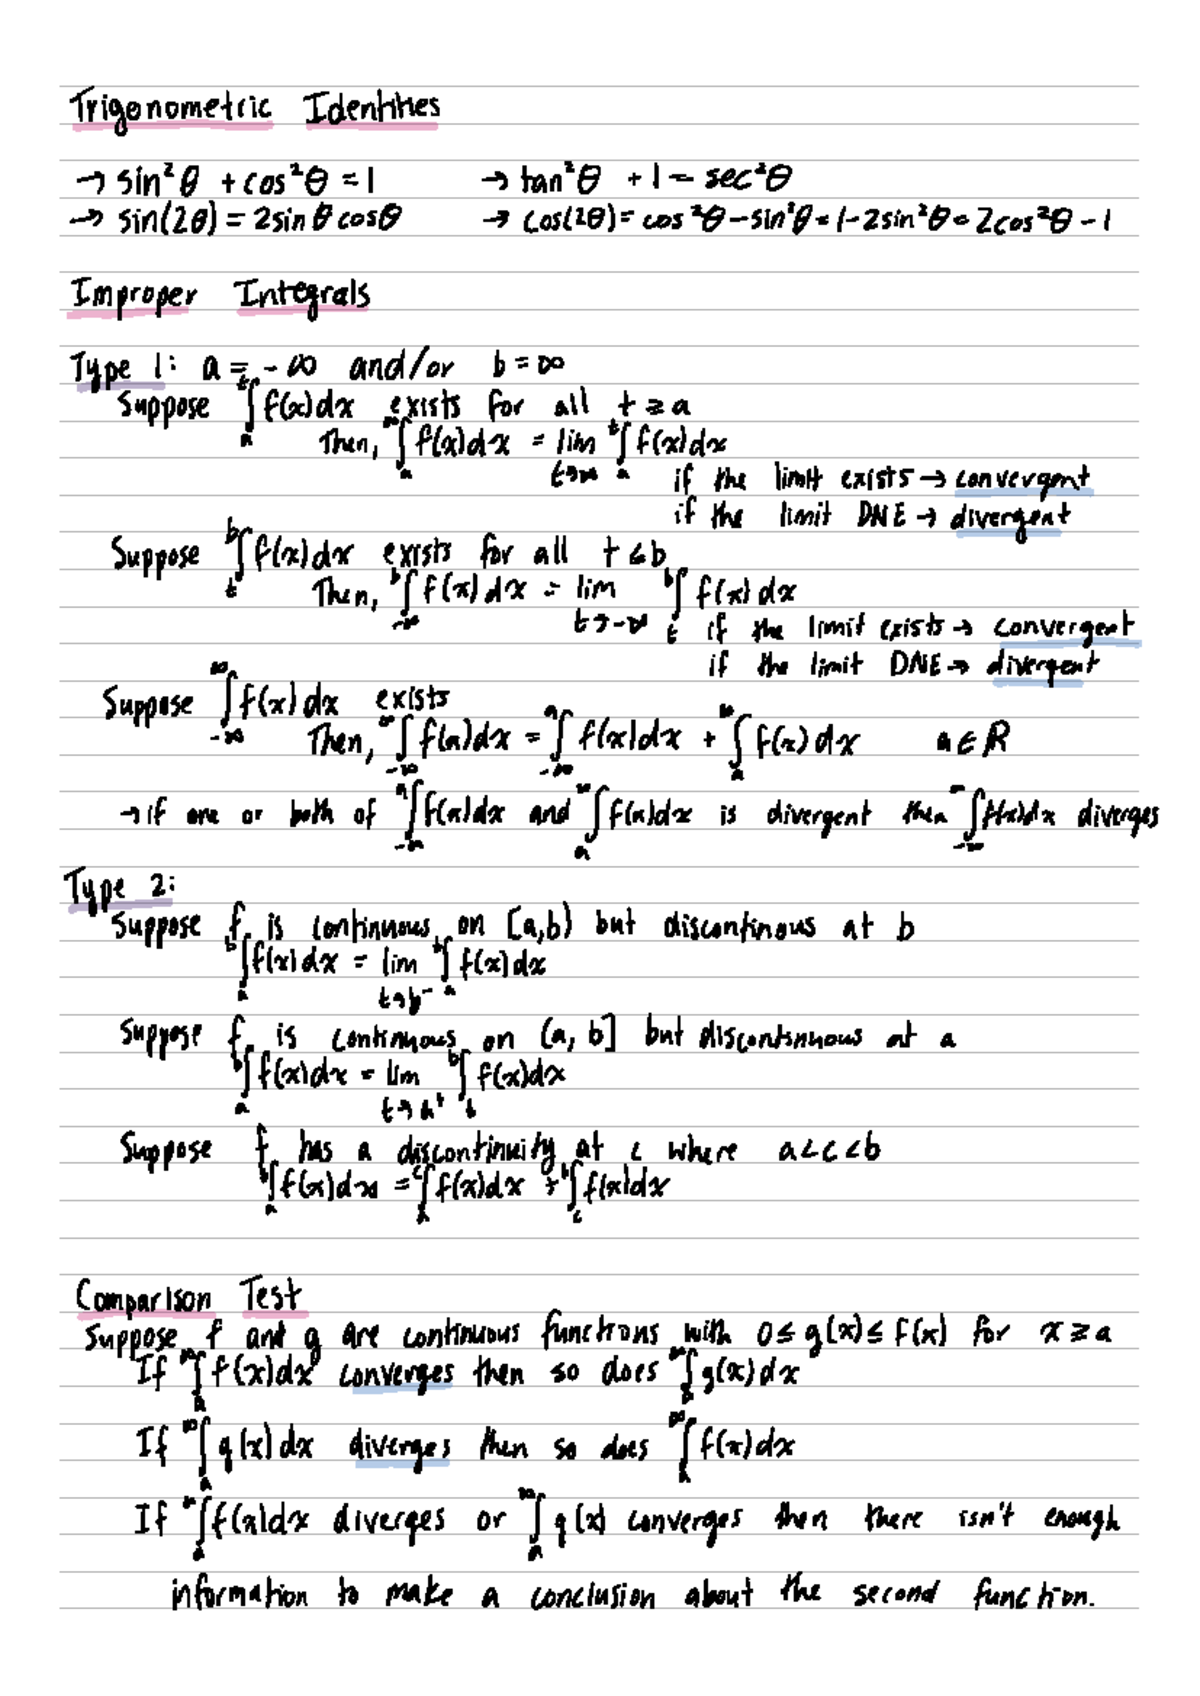 Trigonometric Identities
→ sin²θ + cos²θ = 1 → tan²θ + 1 = sec²θ
→ sin(2θ) = 2sinθcosθ → cos(2θ) = cos²θ - sin²θ = 1 - 2sin²θ = 2cos²θ - 1
Improper Integrals
Type 1: a = -∞ and/or b = ∞
Suppose ∫ₐᵗ f(x)dx exists for all t ≥ a
Then, ∫ₐ^∞ f(x)dx = lim_{t→∞} ∫ₐᵗ f(x)dx
if the limit exists → convergent
if the limit DNE → divergent
Suppose ∫ₜᵇ f(x)dx exists for all t ≤ b
Then, ∫_{-∞}^b f(x)dx = lim_{t→-∞} ∫ₜᵇ f(x)dx
if the limit exists → convergent
if the limit DNE → divergent
Suppose ∫_{-∞}^∞ f(x)dx exists
Then, ∫_{-∞}^∞ f(x)dx = ∫_{-∞}^a f(x)dx + ∫ₐ^∞ f(x)dx a∈ℝ
→ if one or both of ∫_{-∞}^a f(x)dx and ∫ₐ^∞ f(x)dx is divergent then ∫_{-∞}^∞ f(x)dx diverges
Type 2:
Suppose f is continuous on [a,b) but discontinous at b
∫ₐᵇ f(x)dx = lim_{t→b⁻} ∫ₐᵗ f(x)dx
Suppose f is continuous on (a, b] but discontinuous at a
∫ₐᵇ f(x)dx = lim_{t→a⁺} ∫ₜᵇ f(x)dx
Suppose f has a discontinuity at c where a<c<b
∫ₐᵇ f(x)dx = ∫ₐᶜ f(x)dx + ∫_c^b f(x)dx
Comparison Test
Suppose f and g are continuous functions with 0 ≤ g(x) ≤ f(x) for x ≥ a
If ∫ₐ^∞ f(x)dx converges then so does ∫ₐ^∞ g(x)dx
If ∫ₐ^∞ g(x)dx diverges then so does ∫ₐ^∞ f(x)dx
If ∫ₐ^∞ f(x)dx diverges or ∫ₐ^∞ g(x) converges then there isn't enough
information to make a conclusion about the second function.